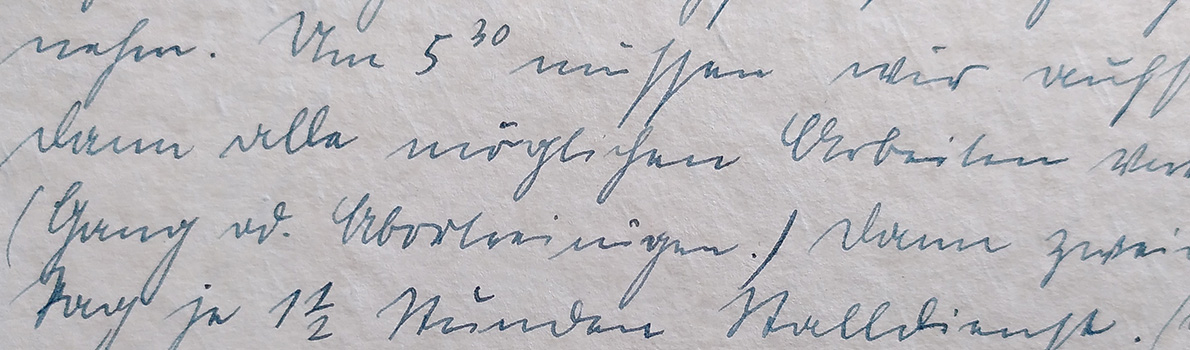 nehm. Um 5 30 müssen wir aufs
dann alle möglichen Arbeiten ver
(Gang od. Abortreinigen.) Dann zwei
Tag je 1 1/2 Stunden Stalldienst. (